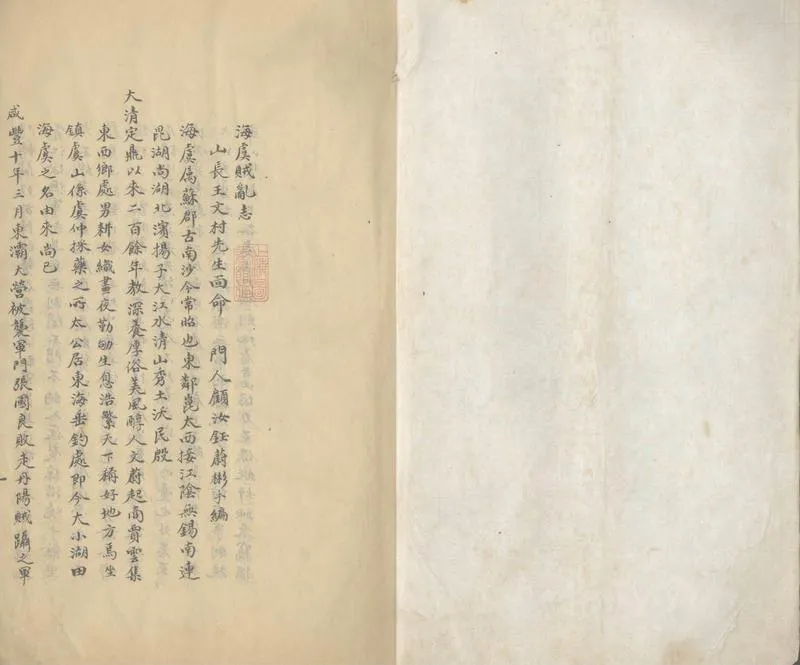 海虞賊亂志
山長王文村先生面命　門人顧汝鈺蔚彬手編
海虞属蘇郡古南沙今常昭也東鄰崑太西接江陰無錫南連
毘湖尚湖北濱揚子大江水清山秀土沃民殷
大清定鼎以來二百餘年教深養厚俗美風醇人文蔚起商賈雲集
東西鄉處男耕女織晝夜勤劬生息浩繁天下稱好地方焉坐
鎮虞山係虞仲採藥之所太公居東海垂釣處即今大小湖田
海虞之名由來尚已
咸豐十年三月東灞大營被襲軍門張國良敗走丹陽賊躡之軍